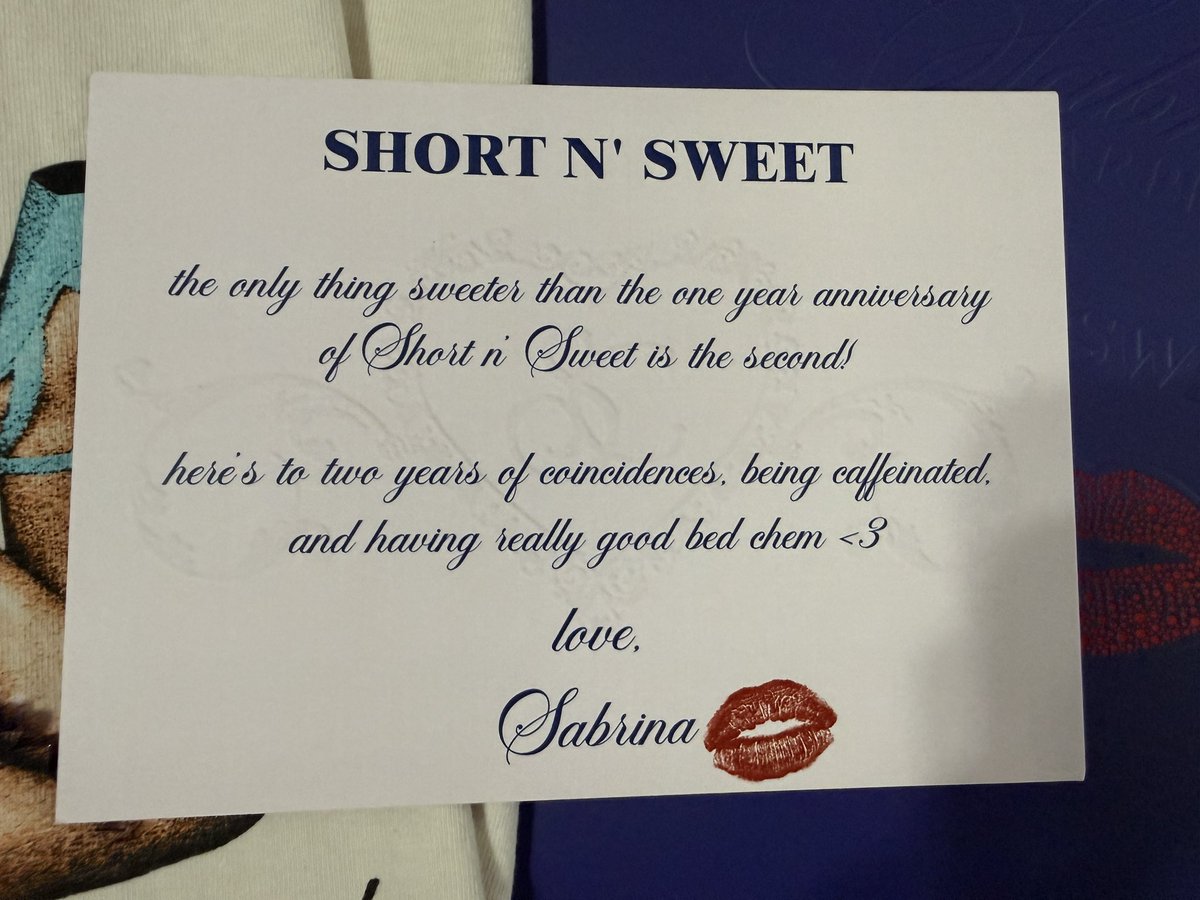 SHORT N' SWEET
the only thing sweeter than the one year anniversary
of Short n' Sweet is the second!
here's to two years of coincidences, being caffeinated,
and having really good bed chem <3
love,
Sabrina